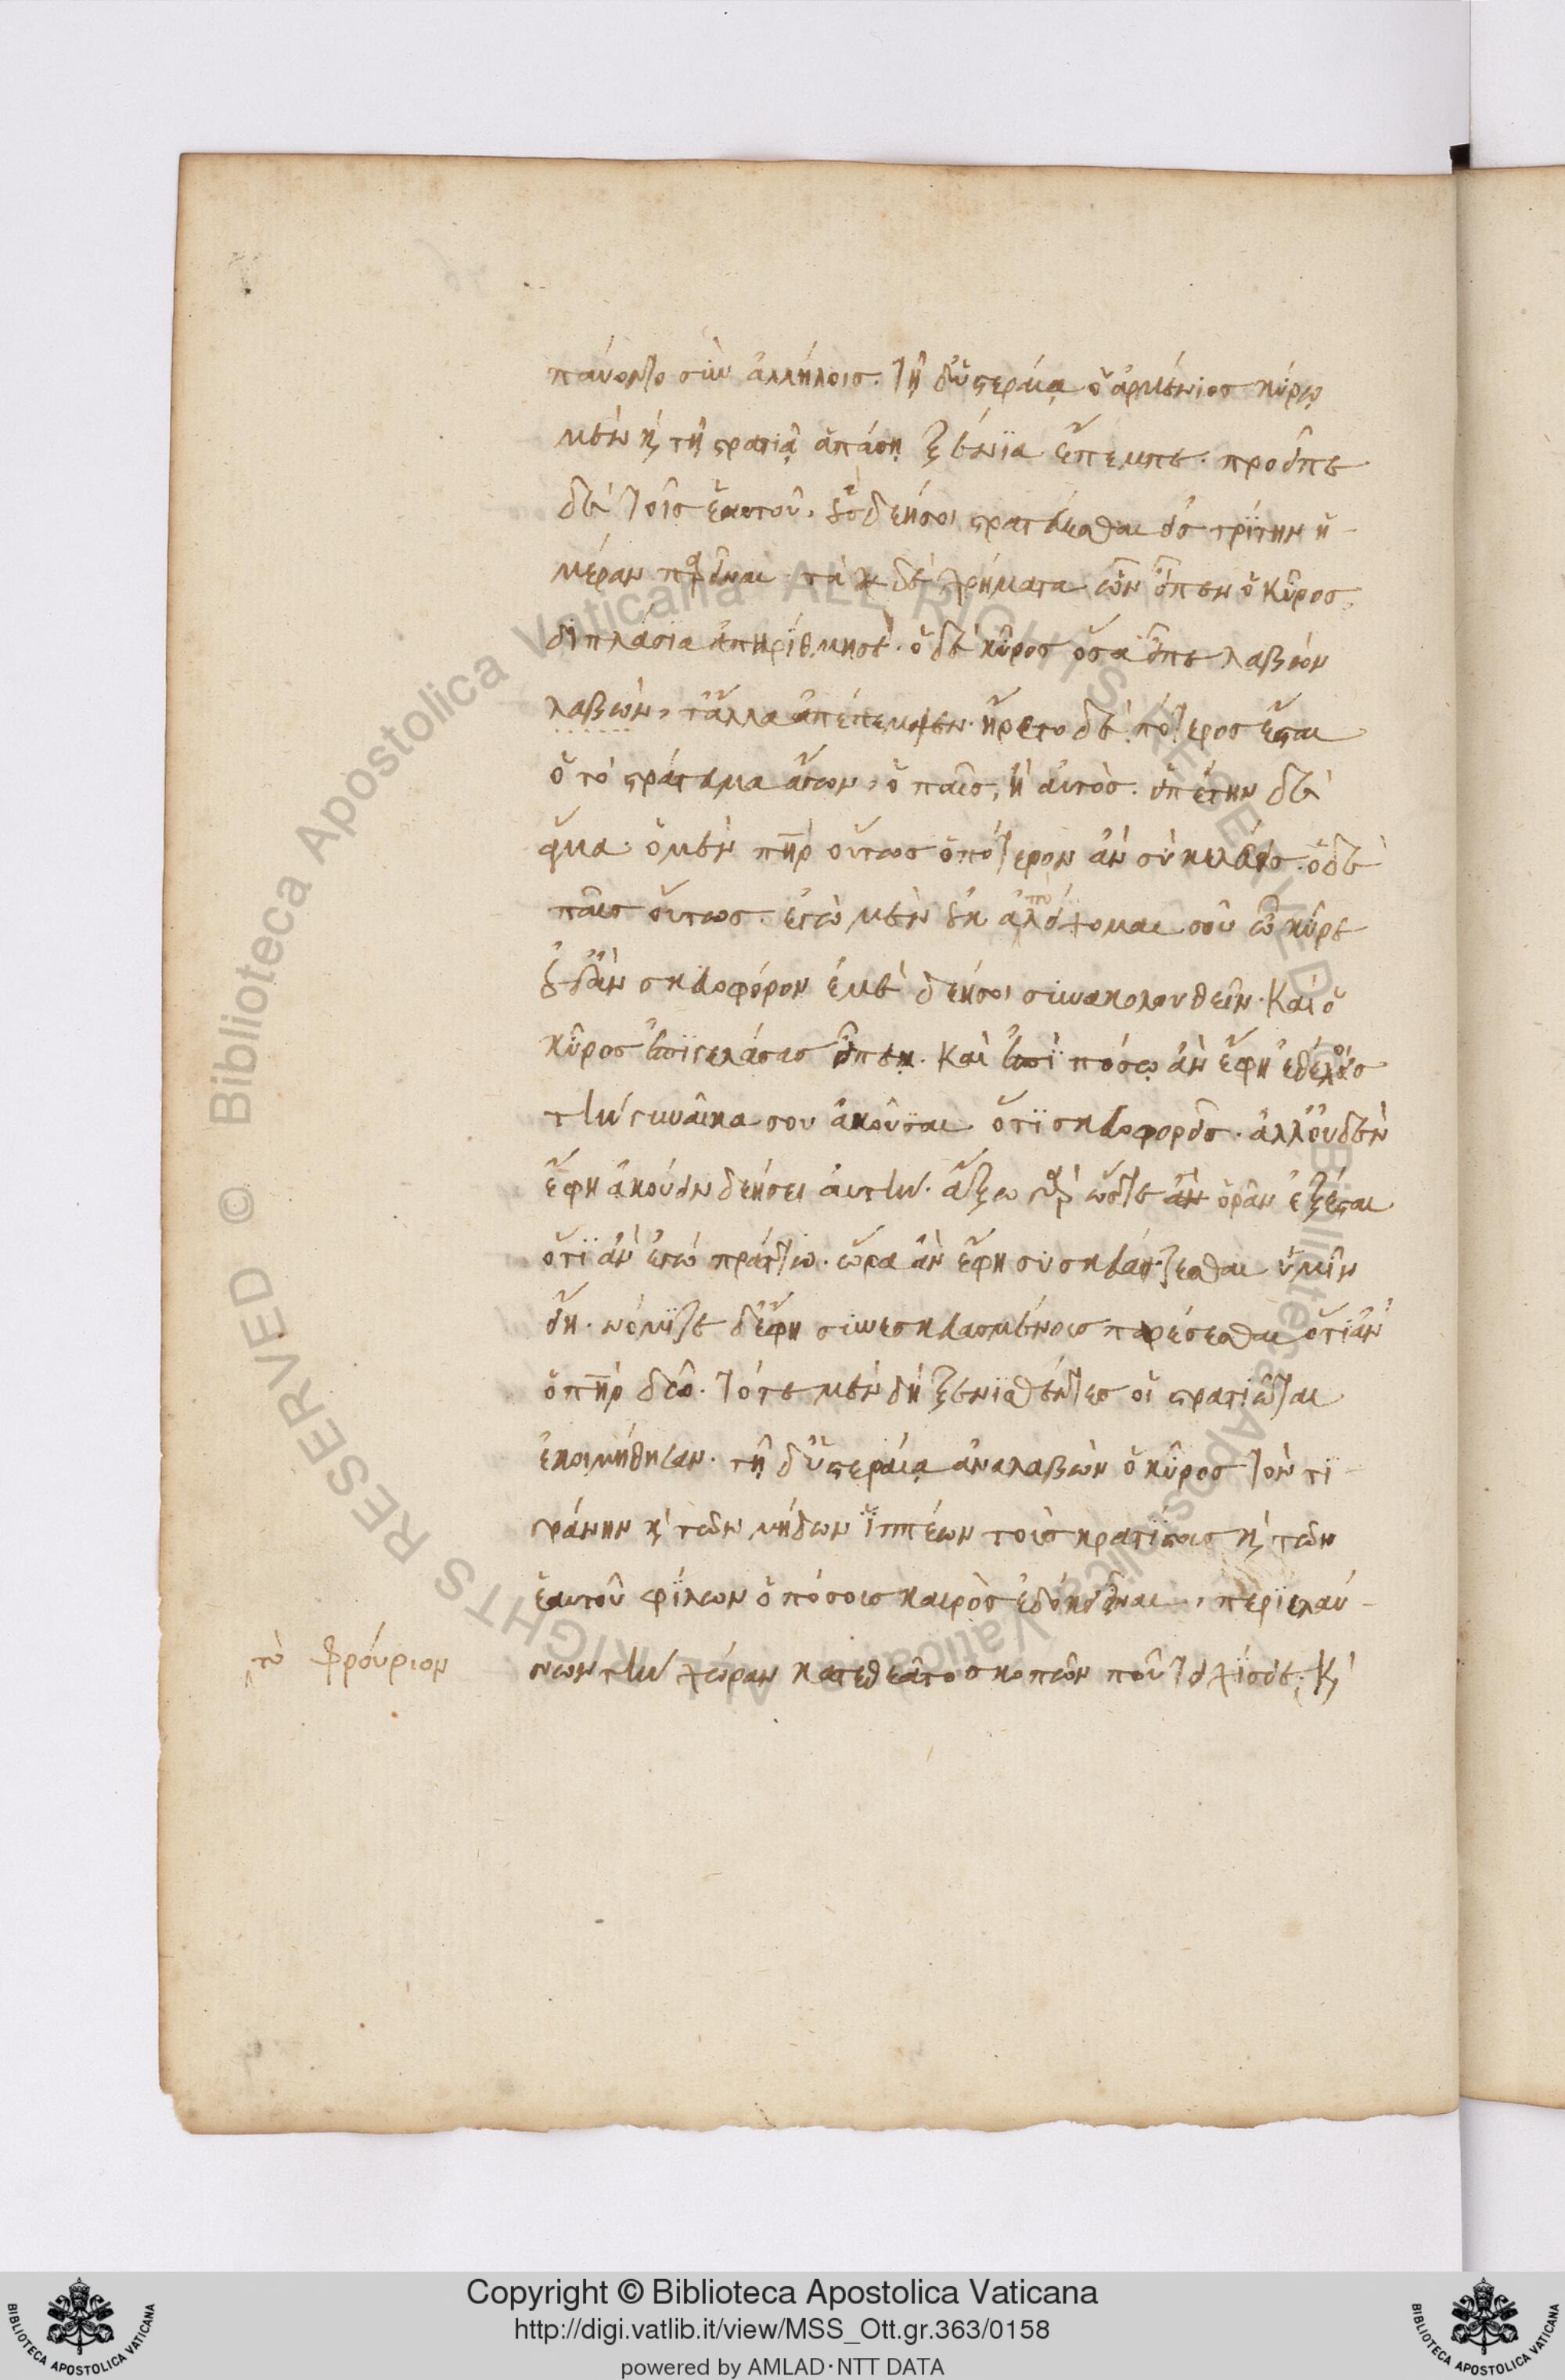 παύοντο σὺν ἀλλήλοις. Τῇ δ' ὑστεραίᾳ ὁ ἀρμένιος κύρῳ
μὲν καὶ τῇ στρατιᾷ ἁπάσῃ ξένϊα ἔπεμπε. προεῖπε
δὲ τοῖς ἑαυτοῦ, οὓς δεήσοι στρατεύεσθαι εἰς τρίτην ἡ-
μέραν παρεῖναι. τὰ δὲ χρήματα ὧν εἶπεν ὁ κῦρος,
διπλάσϊα ἀπηρίθμησε. ὁ δὲ κῦρος ὅσα εἶπε λαβὼν
λαβὼν, τἆλλα ἀπέπεμψεν. ἤρετο δὲ πότερος ἔσται
ὁ τὸ στράτευμα ἄγων, ὁ παῖς, ἢ αὐτὸς. εἰπέτην δὲ
ἅμα. ὁ μὲν πὴρ οὕτως ὁπότερον ἂν σὺ κελεύῃς. ὁ δὲ
παῖς οὕτως. ἐγὼ μὲν οὐκ ἀπολείψομαι σοῦ ὦ κῦρε
οὐδ' ἂν σκευοφόρον ἐμὲ δεήσοι συνακολουθεῖν. Καὶ ὁ
κῦρος ἐπϊγελάσας εἶπεν. καὶ ἐπὶ πόσῳ ἂν ἔφη ἐθέλοις
τὴν γυναῖκα σου ἀκοῦσαι ὅτϊ σκευοφορεῖς. ἀλλ' οὐδὲν
ἔφη ἀκούειν δεήσει αὐτὴν. ἄξω γὰρ ὥστε ὁρᾶν ἐξέσται
ὅτϊ ἂν ἐγὼ πράττω. ὥρα ἂν ἔφη συσκευάζεσθαι ὑμῖν
εἴη. νόμϊζε δ' ἔφη συνεσκευασμένοις παρέσεσθαι ὅτι ἂν
ὁ πὴρ δῷ. Τότε μὲν δὴ ξενϊσθέντες οἱ στρατιῶται
ἐκοιμήθησαν. τῇ δ' ὑστεραίᾳ ἀναλαβὼν ὁ κῦρος τὸν τϊ-
γράνην καὶ τῶν μήδων ἵππέων τοὺς κρατίστους καὶ τῶν
ἑαυτοῦ φίλων ὁπόσους καιρὸς ἐδόκει εἶναι, περϊελαύ-
νων τὴν χώραν κατεθεᾶτο σκοπῶν ποῦ τειχϊσειε, καὶ
τὸ φρούριον
Copyright © Biblioteca Apostolica Vaticana
http://digi.vatlib.it/view/MSS_Ott.gr.363/0158
powered by AMLAD·NTT DATA
BIBLIOTECA APOSTOLICA VATICANA
BIBLIOTECA APOSTOLICA VATICANA
Biblioteca Apostolica Vaticana ALL RIGHTS RESERVED © Biblioteca Apostolica Vaticana ALL RIGHTS RESERVED ©